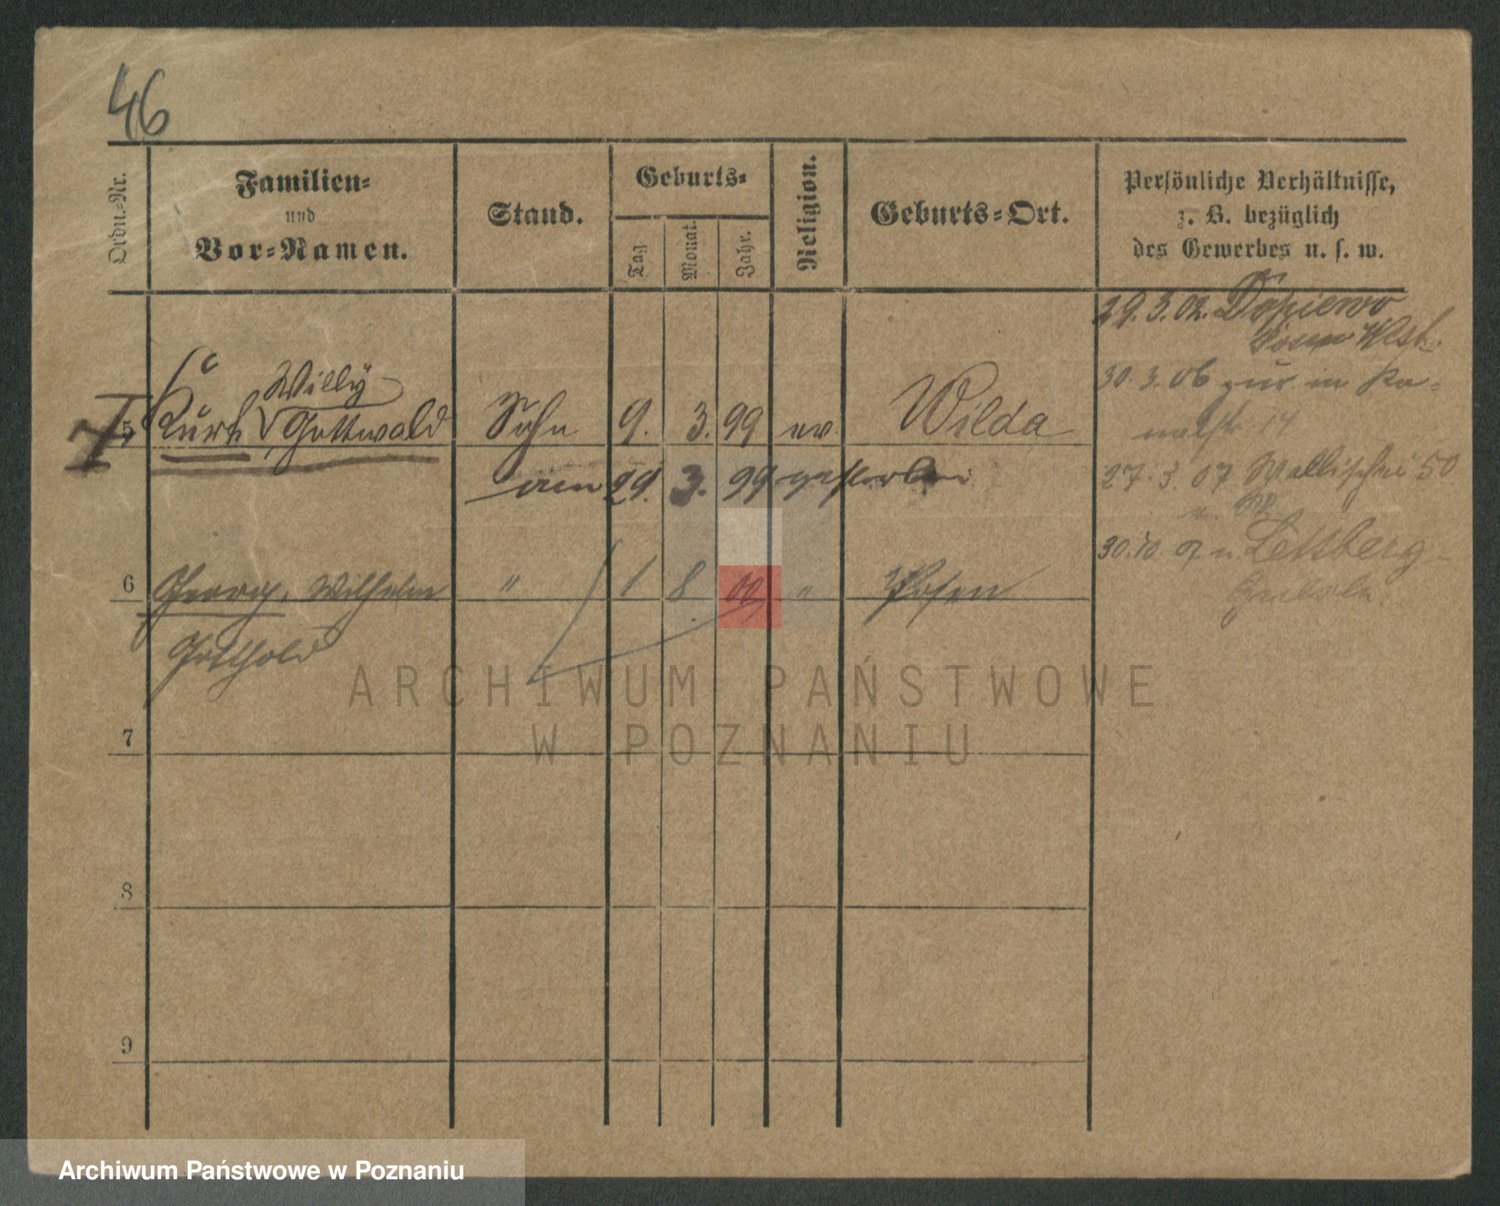 46
Ordn.-Nr.
Familien-
und
Vor-Namen.
Stand.
Geburts-
Tag
Monat.
Jahr.
Religion.
Geburts-Ort.
Persönliche Verhältnisse,
z. B. bezüglich
des Gewerbes u. s. w.
29.3.02. Dopiewo
Willy
5 Kurt Gottwald Sohn 9. 3. 99 ev. Wilda
30.3.06
14
am 29. 3. 99 gestorben
27.3.07 Wallischei 50
30.10.07
6 Georg, Wilhelm " 1 8 00 " Posen
Gotthold
7
8
9
ARCHIWUM PAŃSTWOWE
W POZNANIU
Archiwum Państwowe w Poznaniu